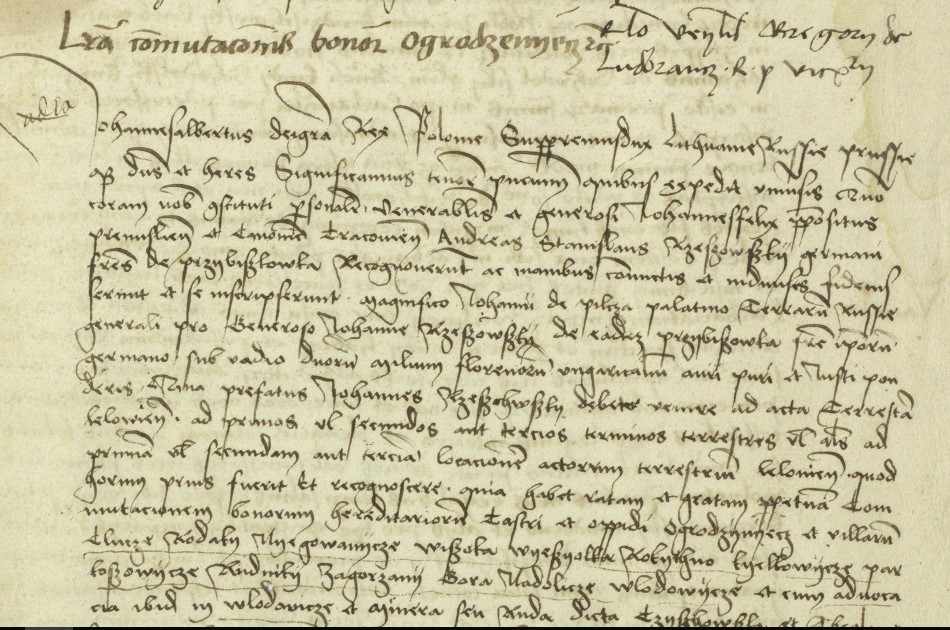 Lra comutacionis bonor Ogrodzenyecz
Rlo venlis Gregorii de
Ludbrancz R p vicxrii
Johannesalbertus deigra Rex Polonie Suppremusdux Lithuanie Russie prussie
qz dns et heres Significamus tenore pncium quibus expedit vniusis Quo
coram nobis Constituti psonalr venerabilis et generosi Johannesfelix ppositus
premislien et Canonicus Cracouien Andreas Stanislaus Rzeszowszky germani
fres de przybiszowka Recognouerunt ac manibus coniunctis et indiuisis fideius
serunt et se inscripserunt magnifico Johanni de pilcza palatino Terrarum Russie
generali pro Generoso Johanne Rzeszowszky de eadez przybiszowka fre ipsorum
germano sub vadio duorum milium florenorum vngaricalium auri puri et Justi pon
deris Quia prefatus Johannes Rzeschwszky debet venire ad acta Terrestria
lelowien ad primos vl secundos aut tercios terminos terrestres vl als ad
primam vl secundam aut terciam locacionem actorum terrestrium lelouien quod
horum prius fuerit Et recognoscere quia habet ratam et gratam ppetuam Com
mutacionem bonorum hereditariorum Castri et oppidi Ogrodzyenyecz et villarum
Clucze Rodaky Nyegowanycze wiszoka pyeszyolka Rokythno kyelkowycze par
koszowycze Rudniky Zagorzany Gora Nadolicze wlodowycze et cum aduoca
cia ibid in wlodowicze et Minera seu Ruda dicta Czyschowszky et